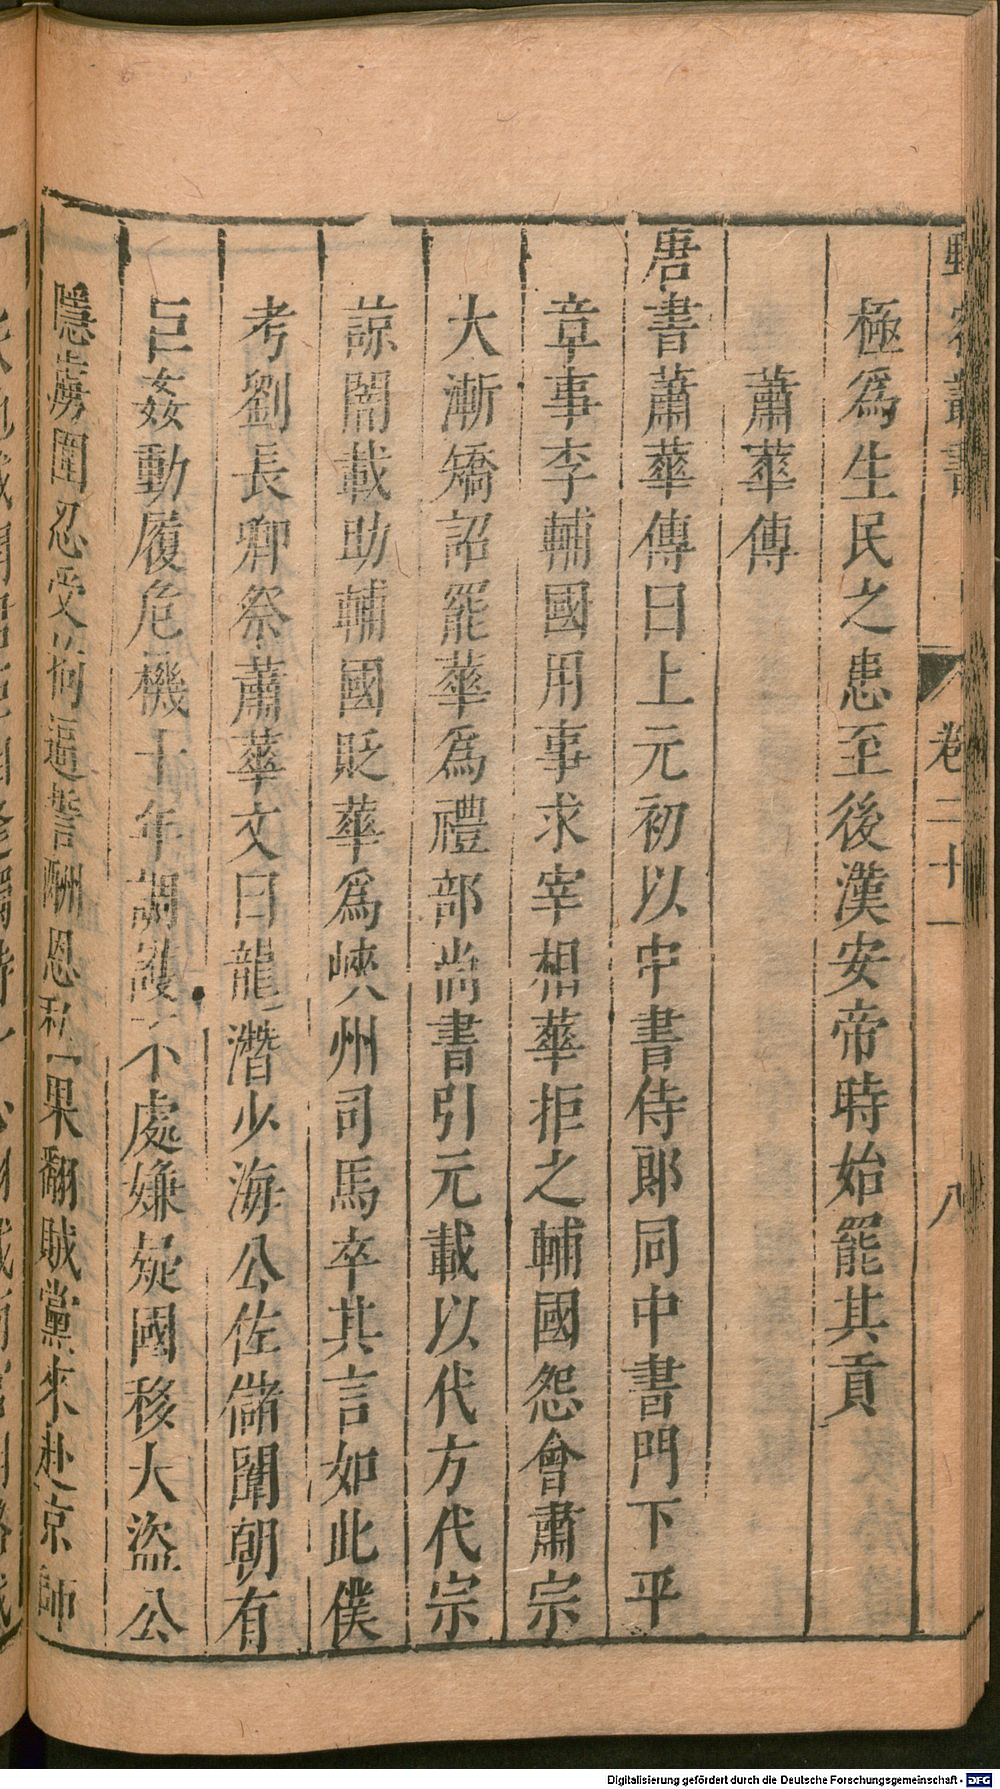 野客叢書
卷二十一
八
極爲生民之患至後漢安帝時始罷其貢
蕭華傳
唐書蕭華傳曰上元初以中書侍郎同中書門下平
章事李輔國用事求宰相華拒之輔國怨會肅宗
大漸矯詔罷華爲禮部尚書引元載以代方代宗
諒闇載助輔國貶華爲峽州司馬卒其言如此僕
考劉長卿祭蕭華文曰龍潛少海公佐儲闈朝有
巨姦動履危機十年調護不處嫌疑國移大盜公
隱虜圍忍受拘逼誓酬恩私一果翻賊黨來赴京師
Digitalisierung gefördert durch die Deutsche Forschungsgemeinschaft - DFG